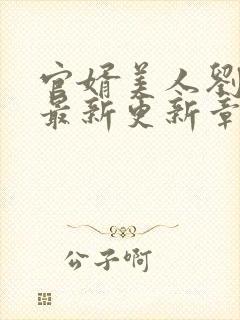 官婿美人劉
最新更新章
公子啊